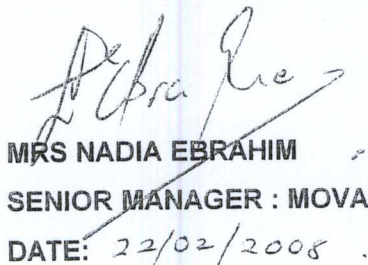 MRS NADIA EBRAHIM
SENIOR MANAGER : MOVA
DATE: 22/02/2008